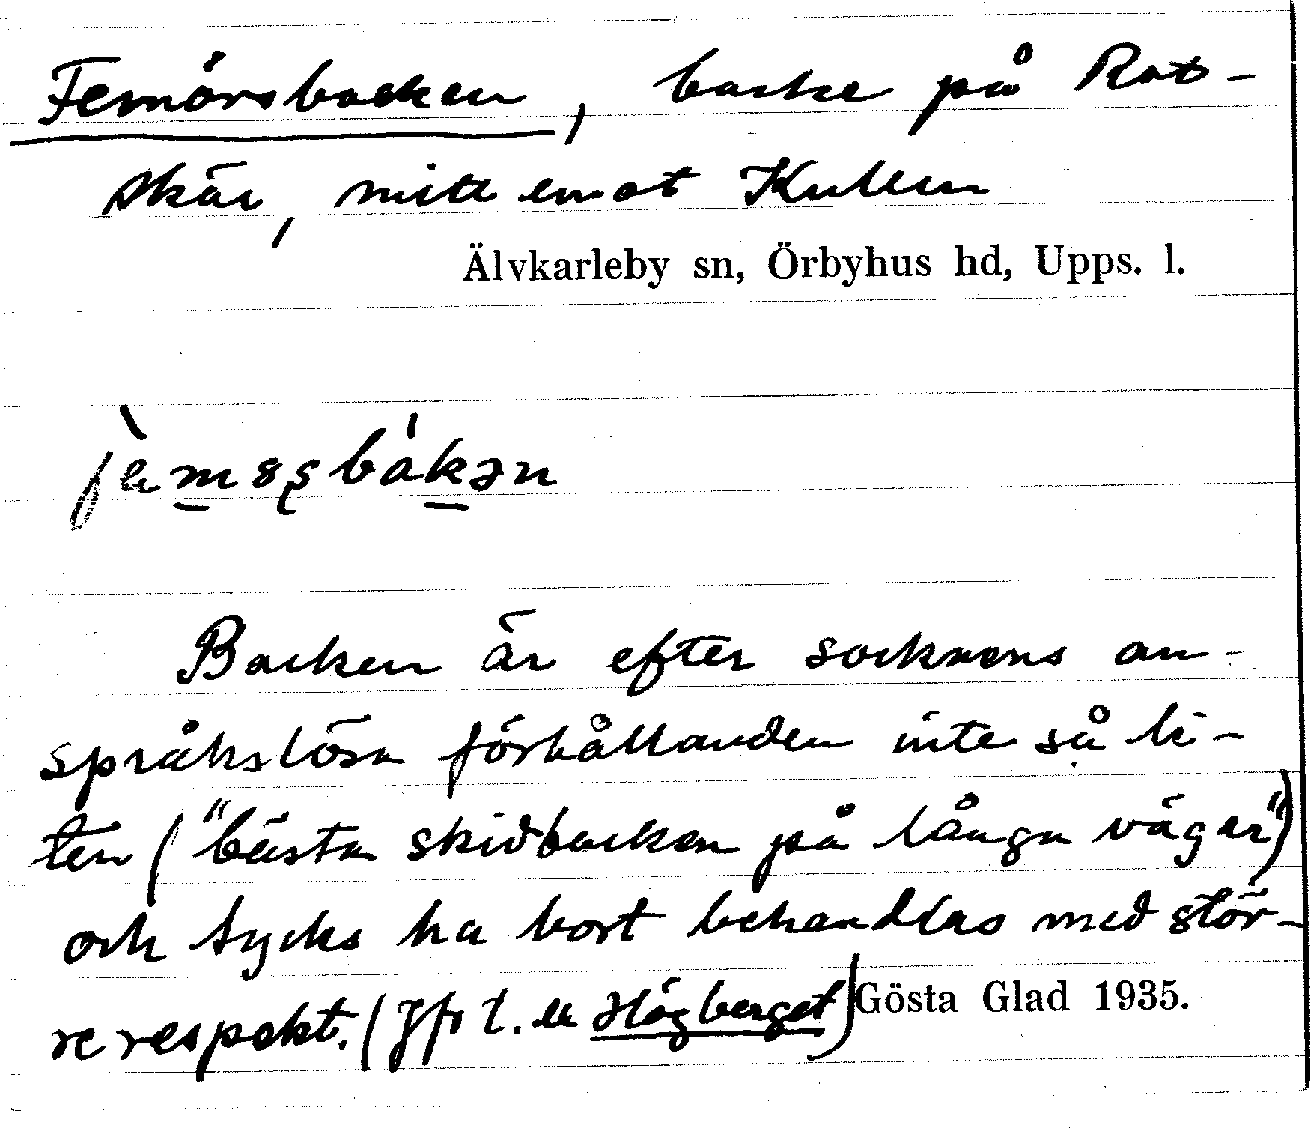 Femörsbacken, backe på Rot-
skär, mitt emot Kullen
Älvkarleby sn, Örbyhus hd, Upps. l.
Backen är efter socknens an-
språkslösa förhållanden inte så li-
ten ("bästa skidbacken på långa vägar")
och tycks ha bort behandlas med stör-
re respekt. (Jfr t. ex Högberget)
Gösta Glad 1935.